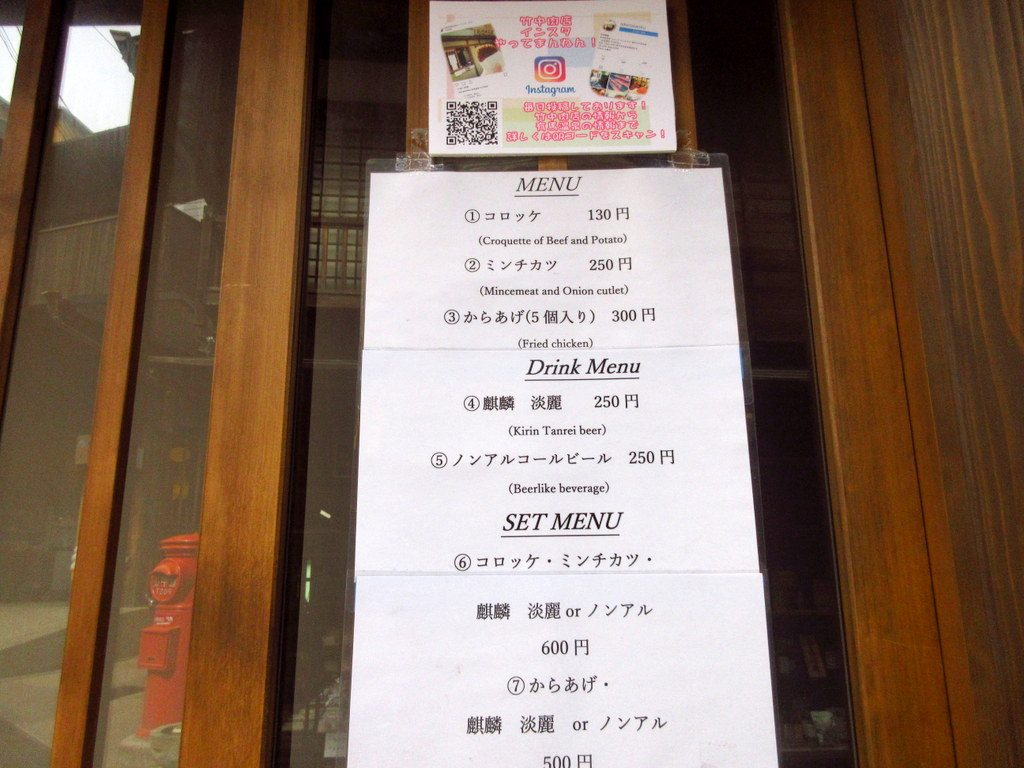 竹中肉店
インスタ
やってまんねん！
Instagram
毎日投稿しております！
竹中肉店の情報から
有馬温泉の情報まで
詳しくはQRコードをスキャン！
MENU
①コロッケ 130円
(Croquette of Beef and Potato)
②ミンチカツ 250円
(Mincemeat and Onion cutlet)
③からあげ(5個入り) 300円
(Fried chicken)
Drink Menu
④麒麟 淡麗 250円
(Kirin Tanrei beer)
⑤ノンアルコールビール 250円
(Beerlike beverage)
SET MENU
⑥コロッケ・ミンチカツ・
麒麟 淡麗 or ノンアル
600円
⑦からあげ・
麒麟 淡麗 or ノンアル
500円